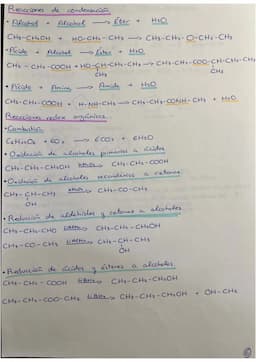 Reacciones de condensación
• Alcohol + Alcohol → Éter + H₂O
CH₃-CH₂OH + HO-CH₂-CH₃ → CH₃-CH₂-O-CH₂-CH₃
• Ácido + Alcohol → Éster + H₂O
CH₃-CH₂-COOH + HO-CH-CH₃ → CH₃-CH₂-COO-CH-CH₃
CH₃ CH₃
• Ácido + Amina → Amida + H₂O
CH₃-CH₂-COOH + H-NH-CH₃ → CH₃-CH₂-CONH-CH₃ + H₂O
Reacciones redox orgánicas
• Combustión
• Oxidación de alcoholes primarios a ácidos
CH₃-CH₂-CH₂OH → CH₃-CH₂-COOH
• Oxidación de alcoholes secundarios a cetonas
CH₃-CH-CH₃ → CH₃-CO-CH₃
OH
• Reducción de aldehídos y cetonas a alcoholes
CH₃-CH₂-CHO → CH₃-CH₂-CH₂OH
CH₃-CO-CH₃ → CH₃-CH-CH₃
OH
• Reducción de ácidos y ésteres a alcoholes
CH₃-CH₂-COOH → CH₃-CH₂-CH₂OH
CH₃-CH₂-COO-CH₃ → CH₃-CH₂-CH₂OH + OH-CH₃